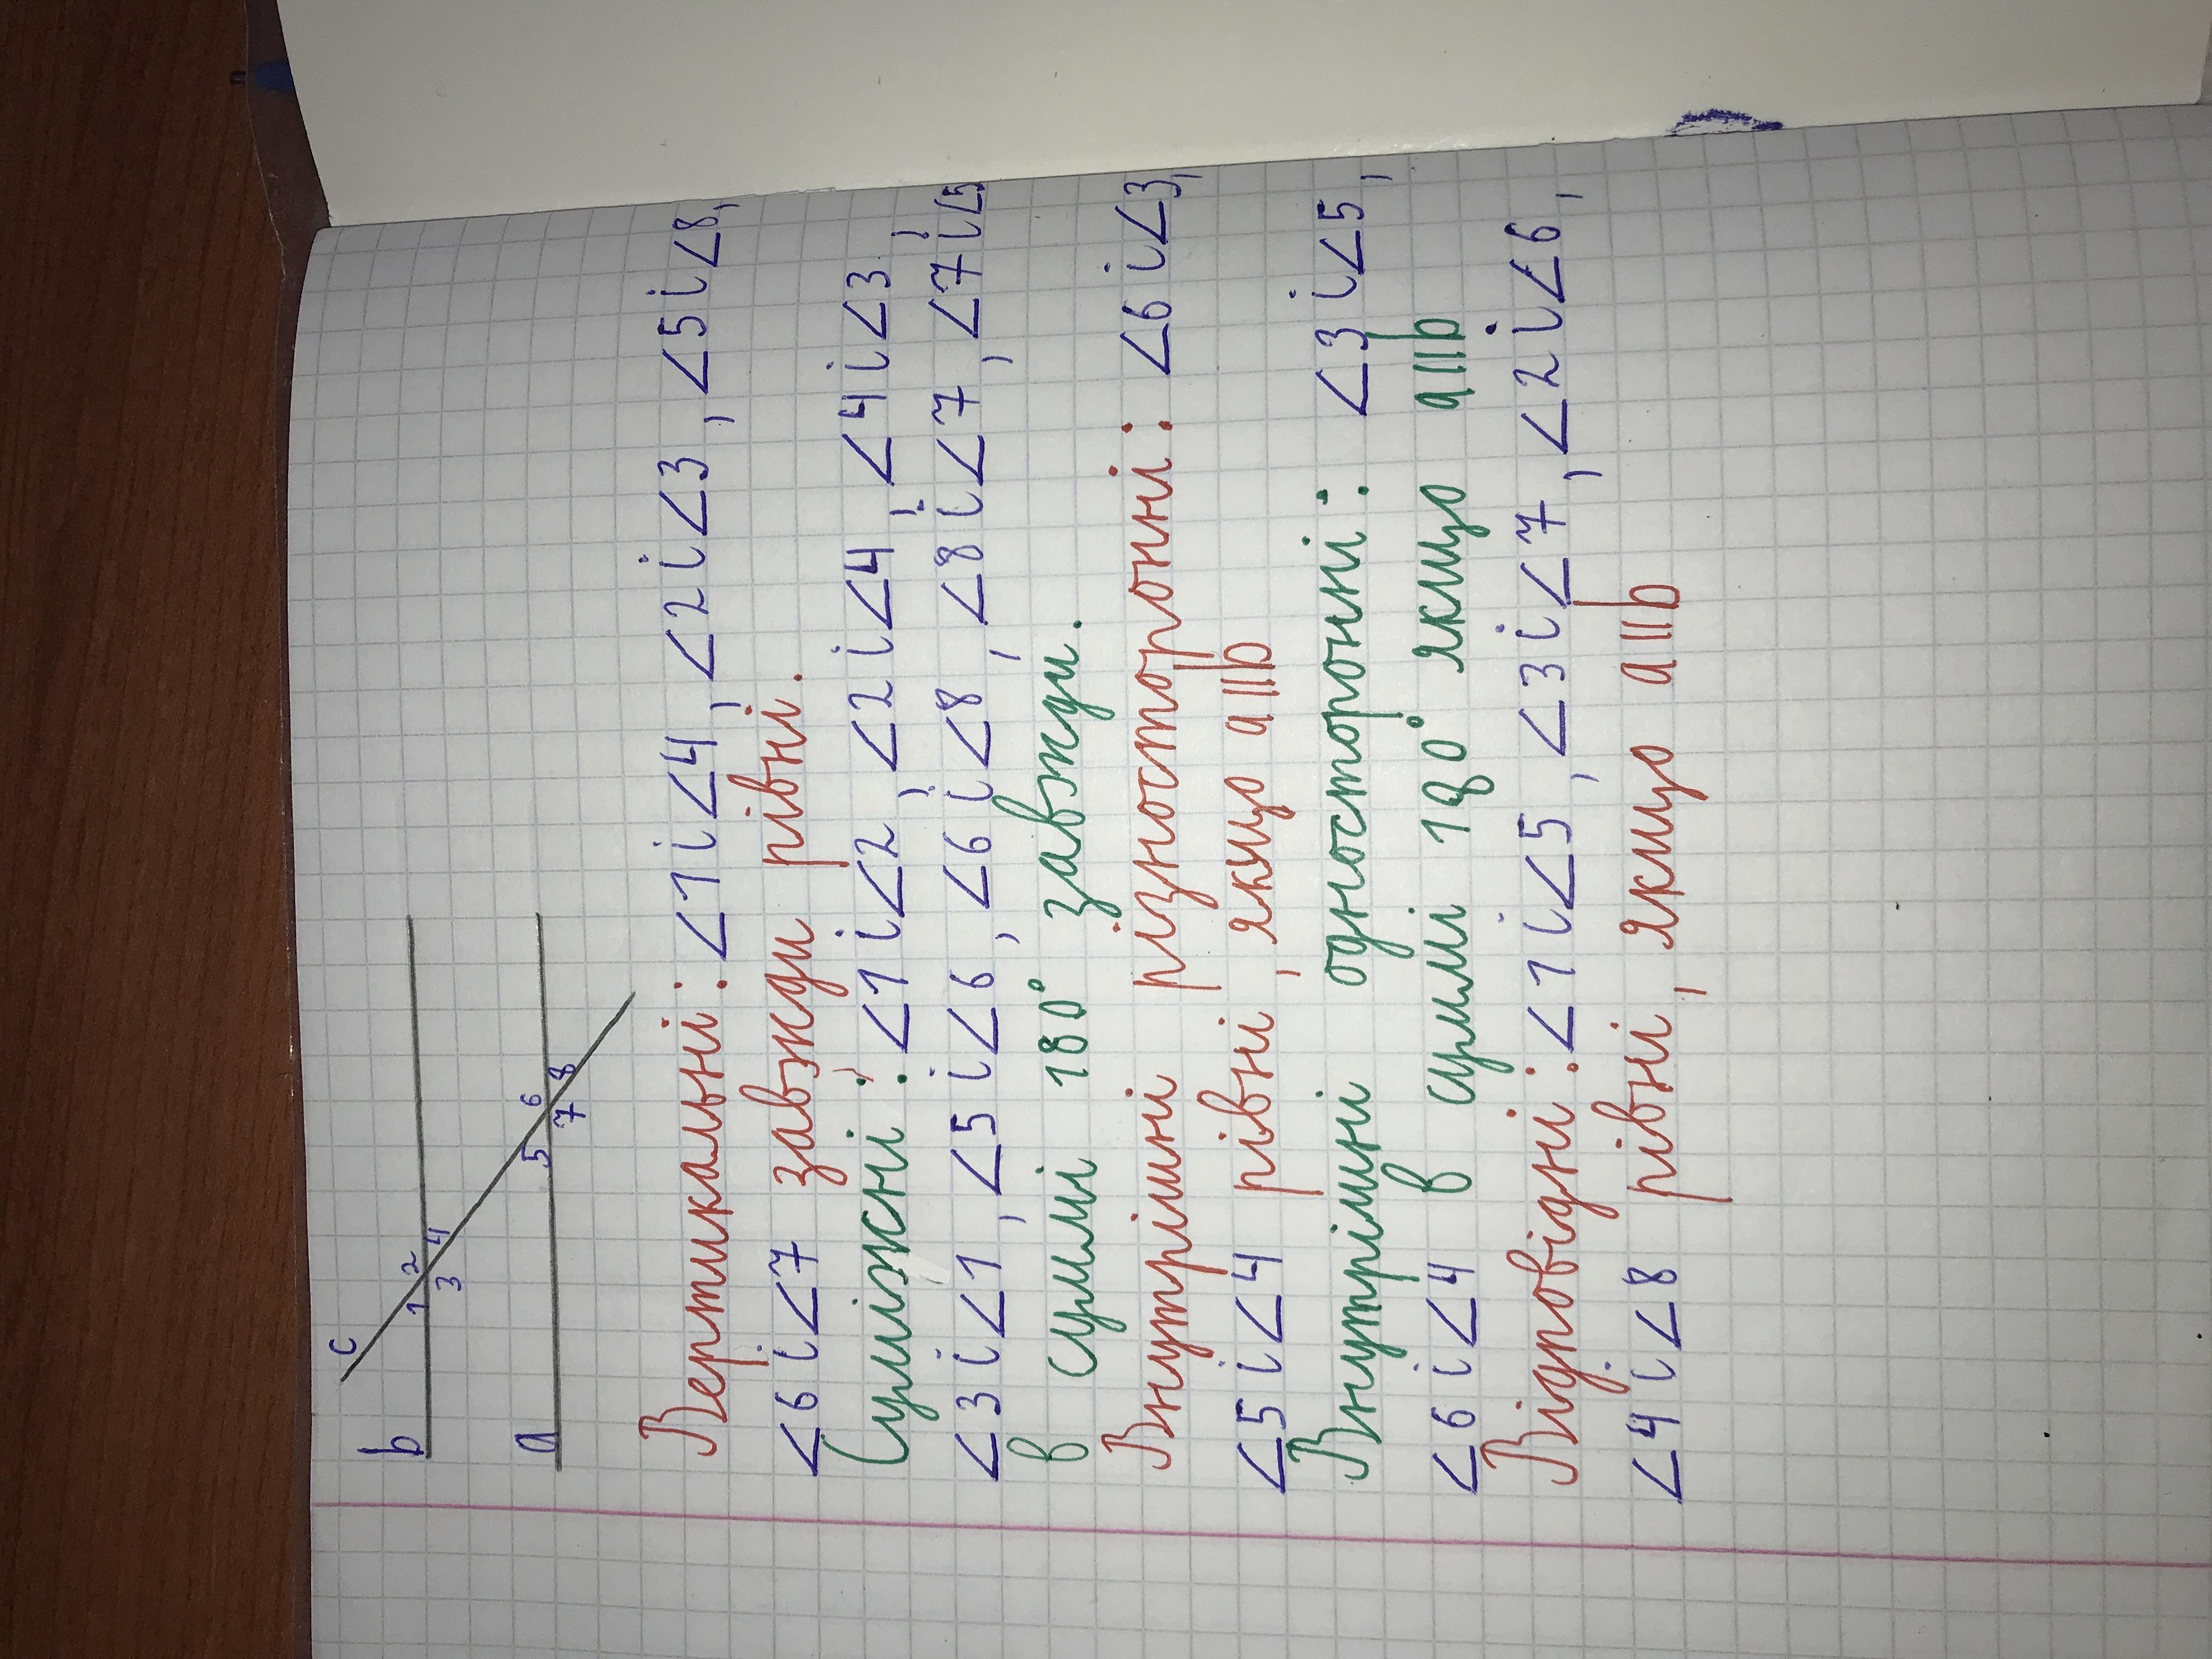 c
b
1 2
3 4
a
5 6
7 8
Вертикальні: ∠1 і ∠4, ∠2 і ∠3, ∠5 і ∠8,
∠6 і ∠7 завжди рівні.
Суміжні: ∠1 і ∠2, ∠2 і ∠4, ∠4 і ∠3,
∠3 і ∠1, ∠5 і ∠6, ∠6 і ∠8, ∠8 і ∠7, ∠7 і ∠5
в сумі 180° завжди.
Внутрішні різносторонні: ∠6 і ∠3,
∠5 і ∠4 рівні, якщо a||b
Внутрішні односторонні: ∠3 і ∠5,
∠6 і ∠4 в сумі 180° якщо a||b
Відповідні: ∠1 і ∠5, ∠3 і ∠7, ∠2 і ∠6,
∠4 і ∠8 рівні, якщо a||b